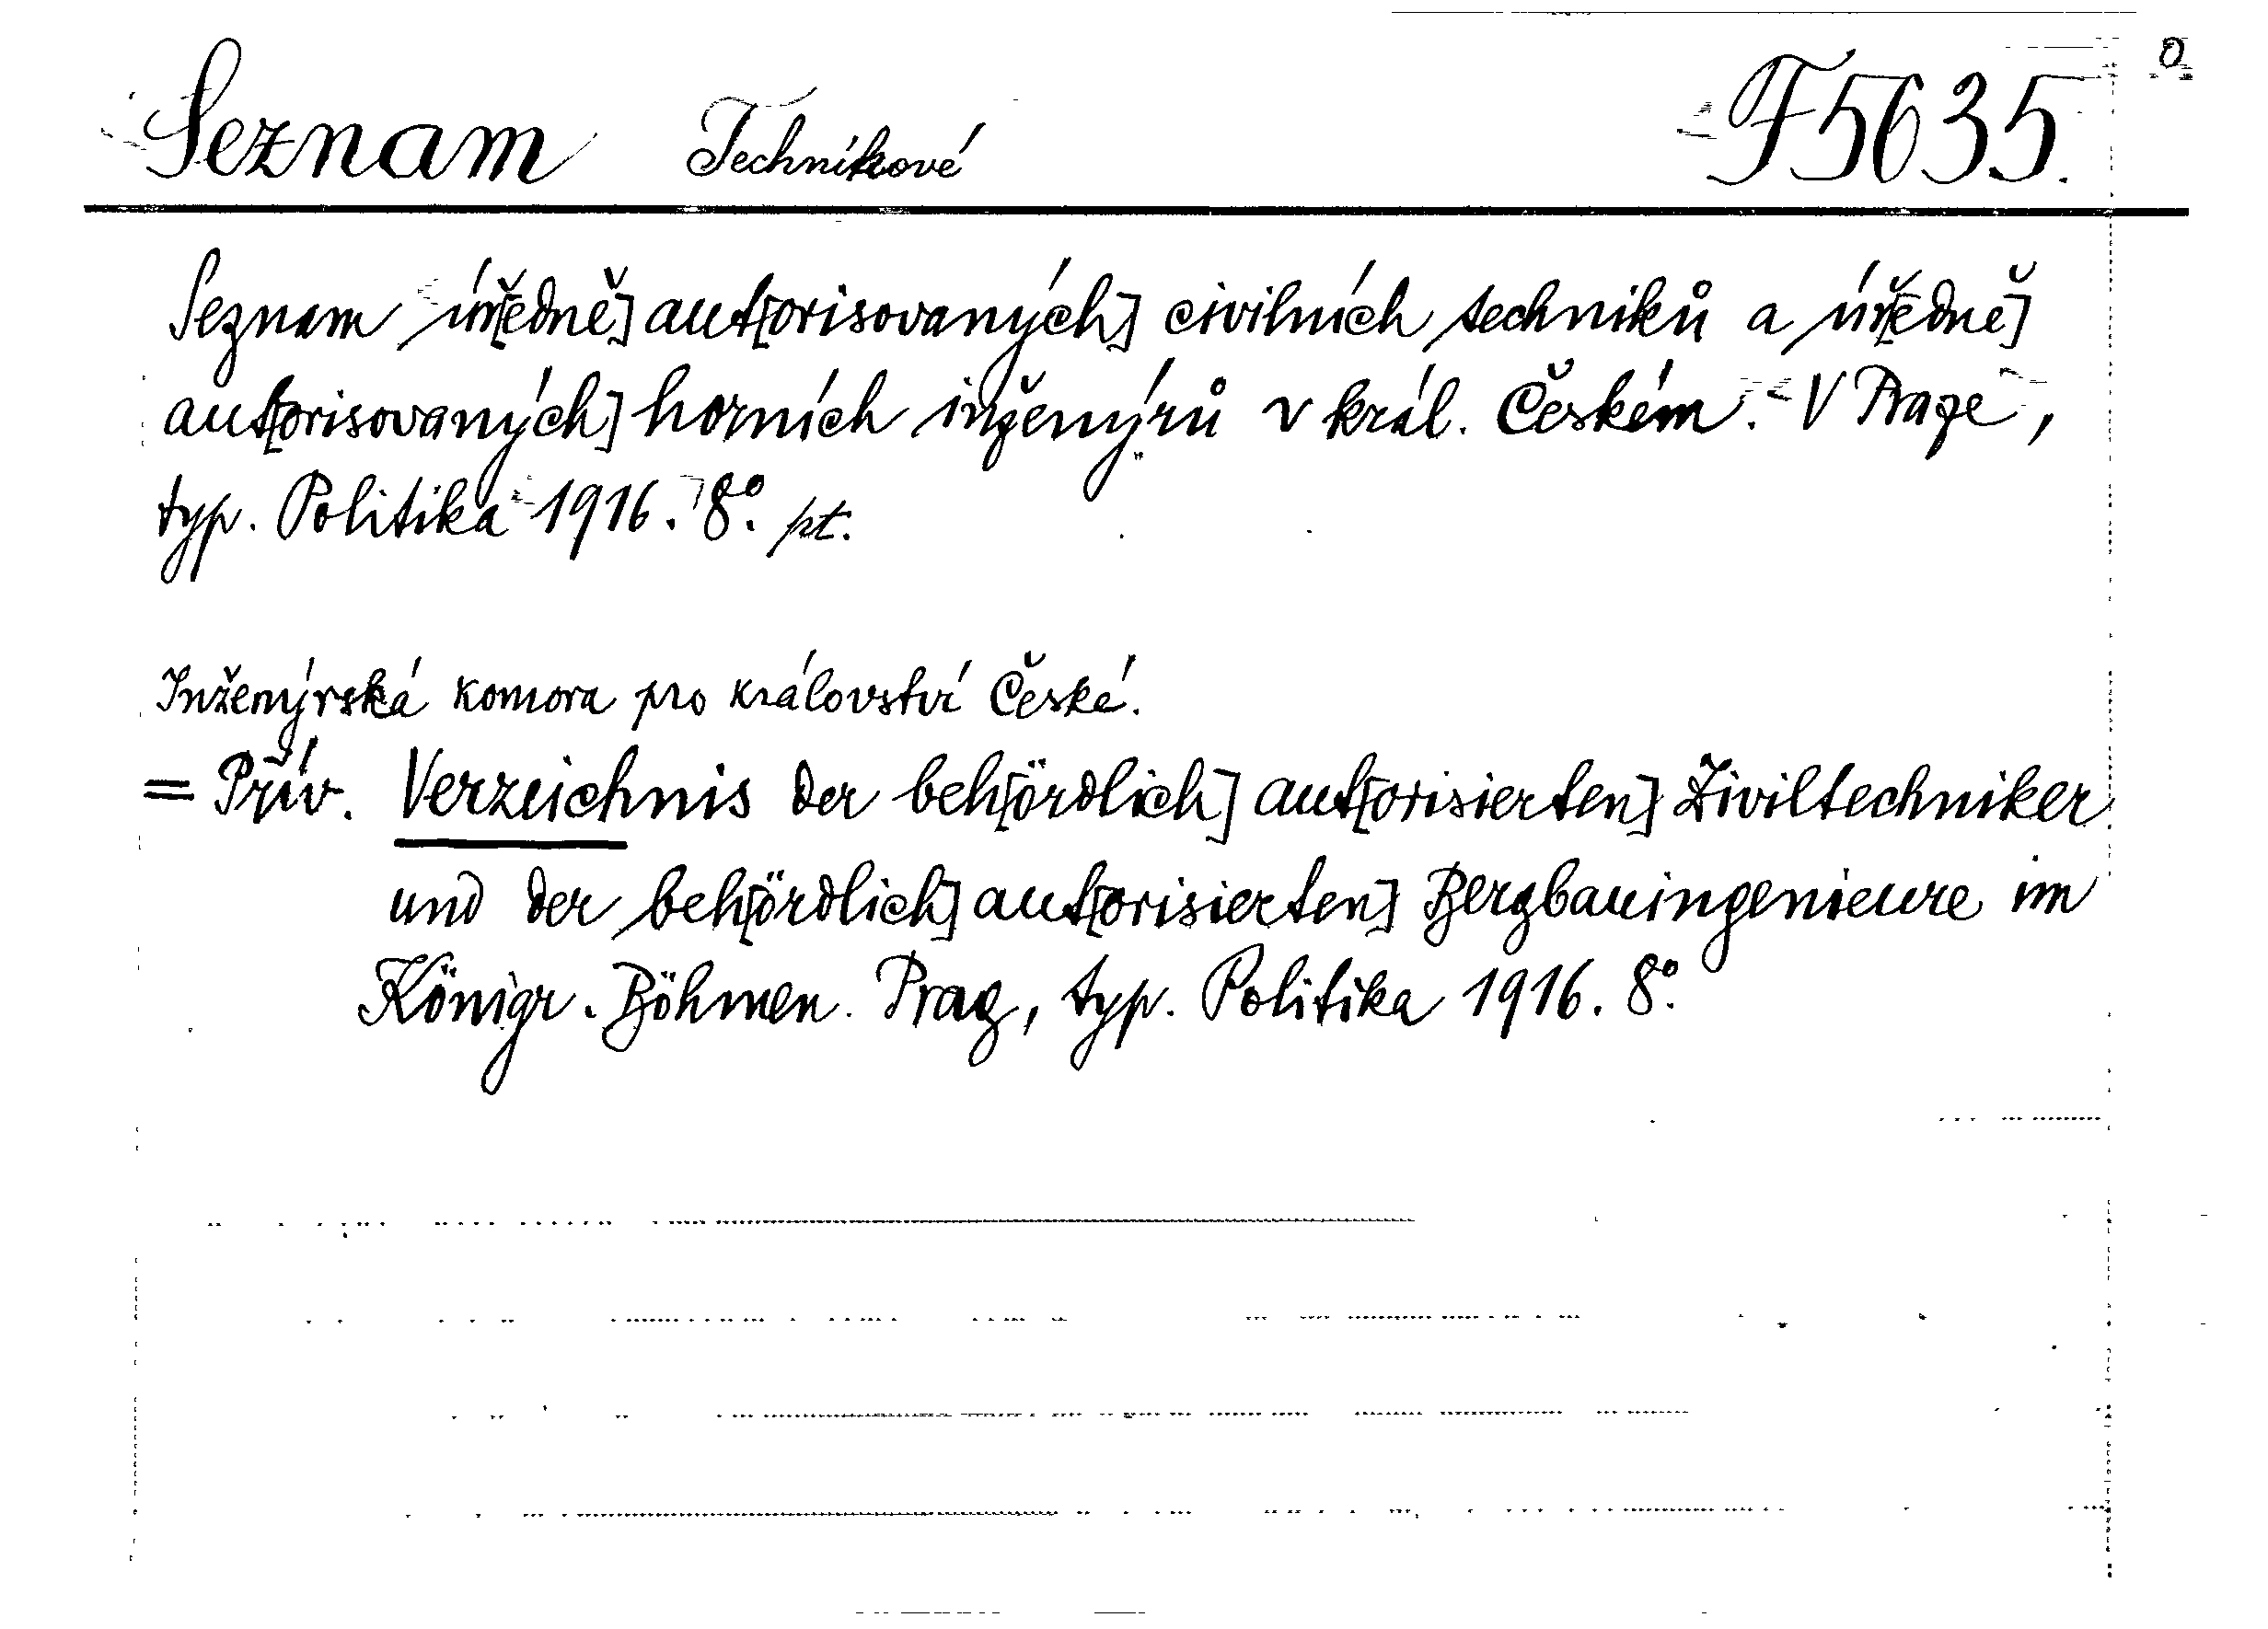 Seznam Technikové F 5635. o
Seznam úř[edně] aut[orisovaných] civilních techniků a úř[edně]
aut[orisovaných] horních inženýrů v král. Českém. V Praze,
typ. Politika 1916. 8°. pt.
Inženýrská komora pro království České.
= Přív. Verzeichnis der beh[ördlich] aut[orisierten] Ziviltechniker
und der beh[ördlich] aut[orisierten] Bergbauingenieure im
Königr. Böhmen. Prag, typ. Politika 1916. 8°.